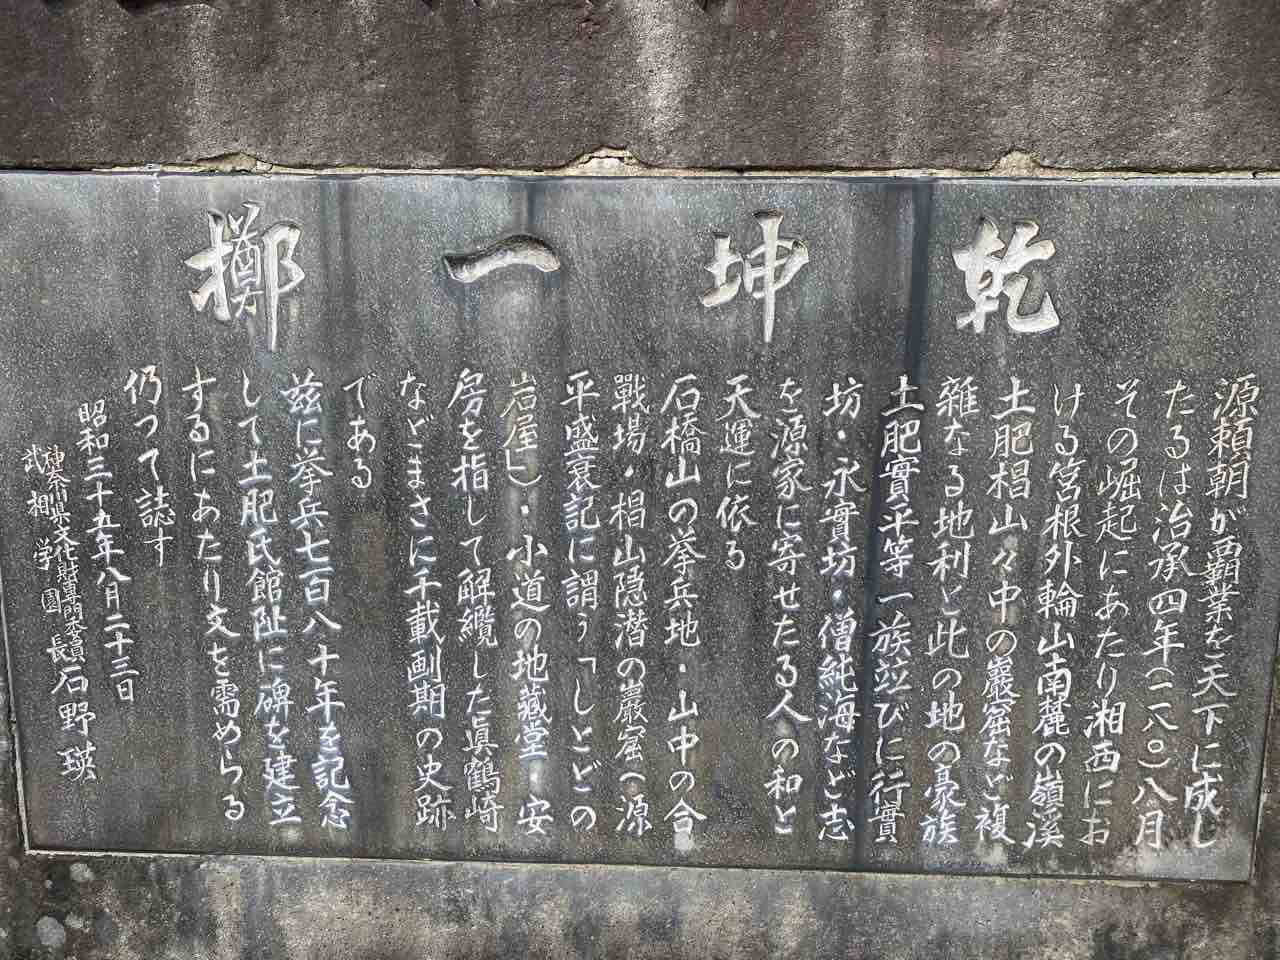 乾坤一擲
源頼朝が覇業を天下に成し
たるは治承四年(一一八〇)八月
その崛起にあたり湘西にお
ける筥根外輪山南麓の嶺溪
土肥椙山々中の巖窟など複
雜なる地利と此の地の豪族
土肥實平等一族竝びに行實
坊・永實坊・僧純海など志
を源家に寄せたる人の和と
天運に依る
石橋山の挙兵地・山中の合
戰場・椙山隠潜の巖窟(源
平盛衰記に謂う「しとどの
岩屋」)・小道の地藏堂・安
房を指して解纜した眞鶴崎
などまさに千載劃期の史跡
である
茲に挙兵七百八十年を記念
して土肥氏館趾に碑を建立
するにあたり文を需めらる
仍つて誌す
昭和三十五年八月二十三日
神奈川県文化財専門委員
武相学園長
石野瑛